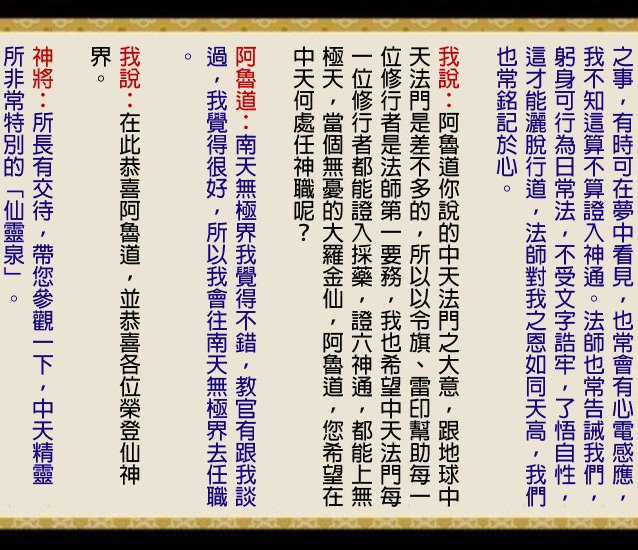 之事，有時可在夢中看見，也常會有心電感應，
我不知這算不算證入神通。法師也常告誡我們，
躬身可行為日常法，不受文字誥牢，了悟自性，
這才能灑脫行道，法師對我之恩如同天高，我們
也常銘記於心。
我說：阿魯道你說的中天法門之大意，跟地球中
天法門是差不多的，所以以令旗、雷印幫助每一
位修行者是法師第一要務，我也希望中天法門每
一位修行者都能證入採藥，證六神通，都能上無
極天，當個無憂的大羅金仙，阿魯道，您希望在
中天何處任神職呢？
阿魯道：南天無極界我覺得不錯，教官有跟我談
過，我覺得很好，所以我會往南天無極界去任職
。
我說：在此恭喜阿魯道，並恭喜各位榮登仙神
界。
神將：所長有交待，帶您參觀一下，中天精靈
所非常特別的「仙靈泉」。